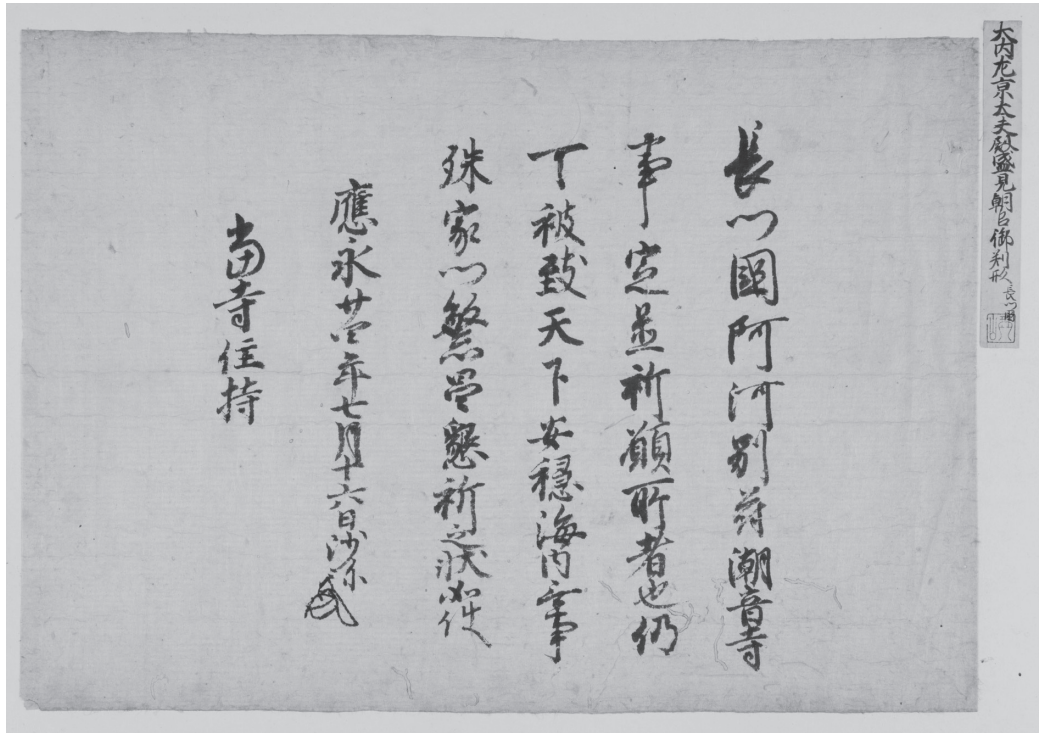 大内左京大夫殿盛見朝臣御判形 長門国
長門國阿河別苻潮音寺
事定置祈願所者也仍
可被致天下安穏海内無事
殊家門繁昌懇祈之状如件
應永廿四年七月十六日沙弥
當寺住持